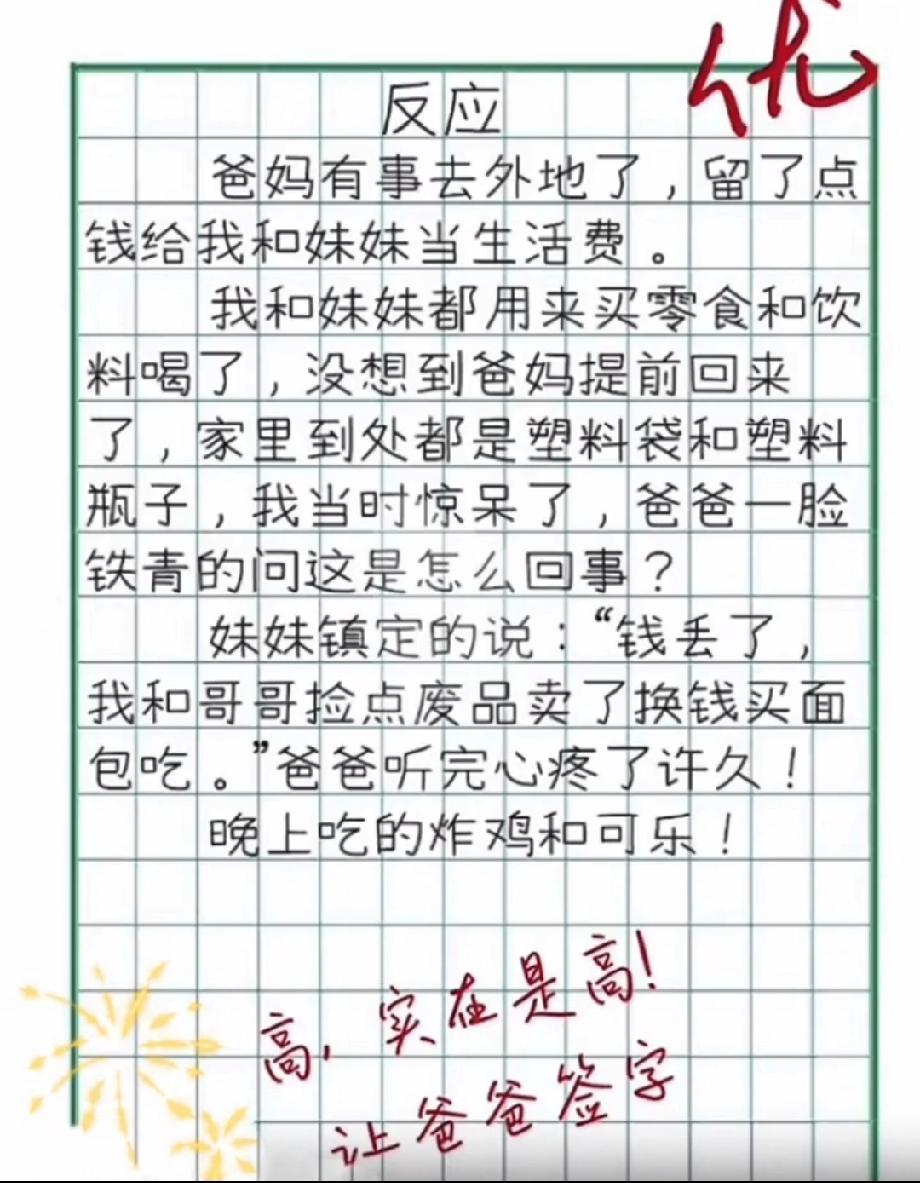 优
反应
爸妈有事去外地了，留了点
钱给我和妹妹当生活费。
我和妹妹都用来买零食和饮
料喝了，没想到爸妈提前回来
了，家里到处都是塑料袋和塑料
瓶子，我当时惊呆了，爸爸一脸
铁青的问这是怎么回事？
妹妹镇定的说：“钱丢了，
我和哥哥捡点废品卖了换钱买面
包吃。”爸爸听完心疼了许久！
晚上吃的炸鸡和可乐！
高，实在是高！
让爸爸签字